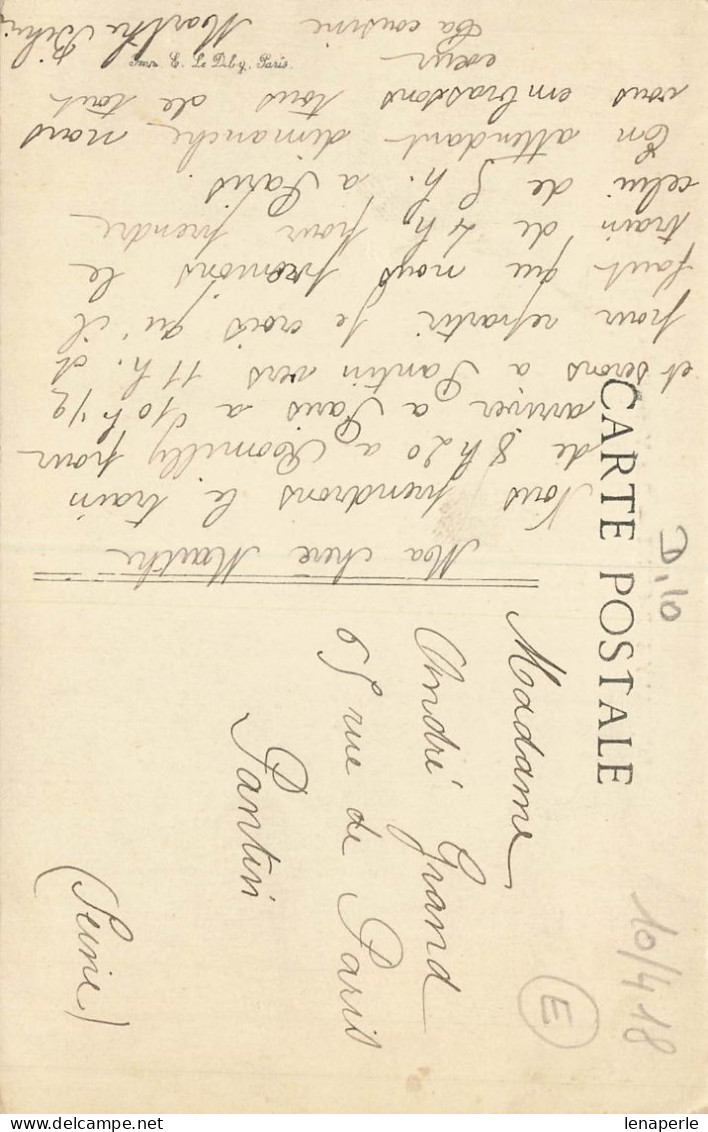 CARTE POSTALE
Ma chère Marthe
Nous prendrons le train
de 8h20 a Romilly pour
arriver a Paris a 10h 1/2
et serons a Pantin vers 11h. et
pour repartir je crois qu'il
faut que nous prenions le
train de 4h. pour prendre
celui de 5h. a Paris.
En attendant dimanche nous
vous embrassons tous de tout
cœur
Ta cousine Marthe
Imp. E. Le Deley, Paris.
Madame
André Grand
65 rue de Paris
Pantin
(Seine)
D,10
10/4 18
E
lenaperle